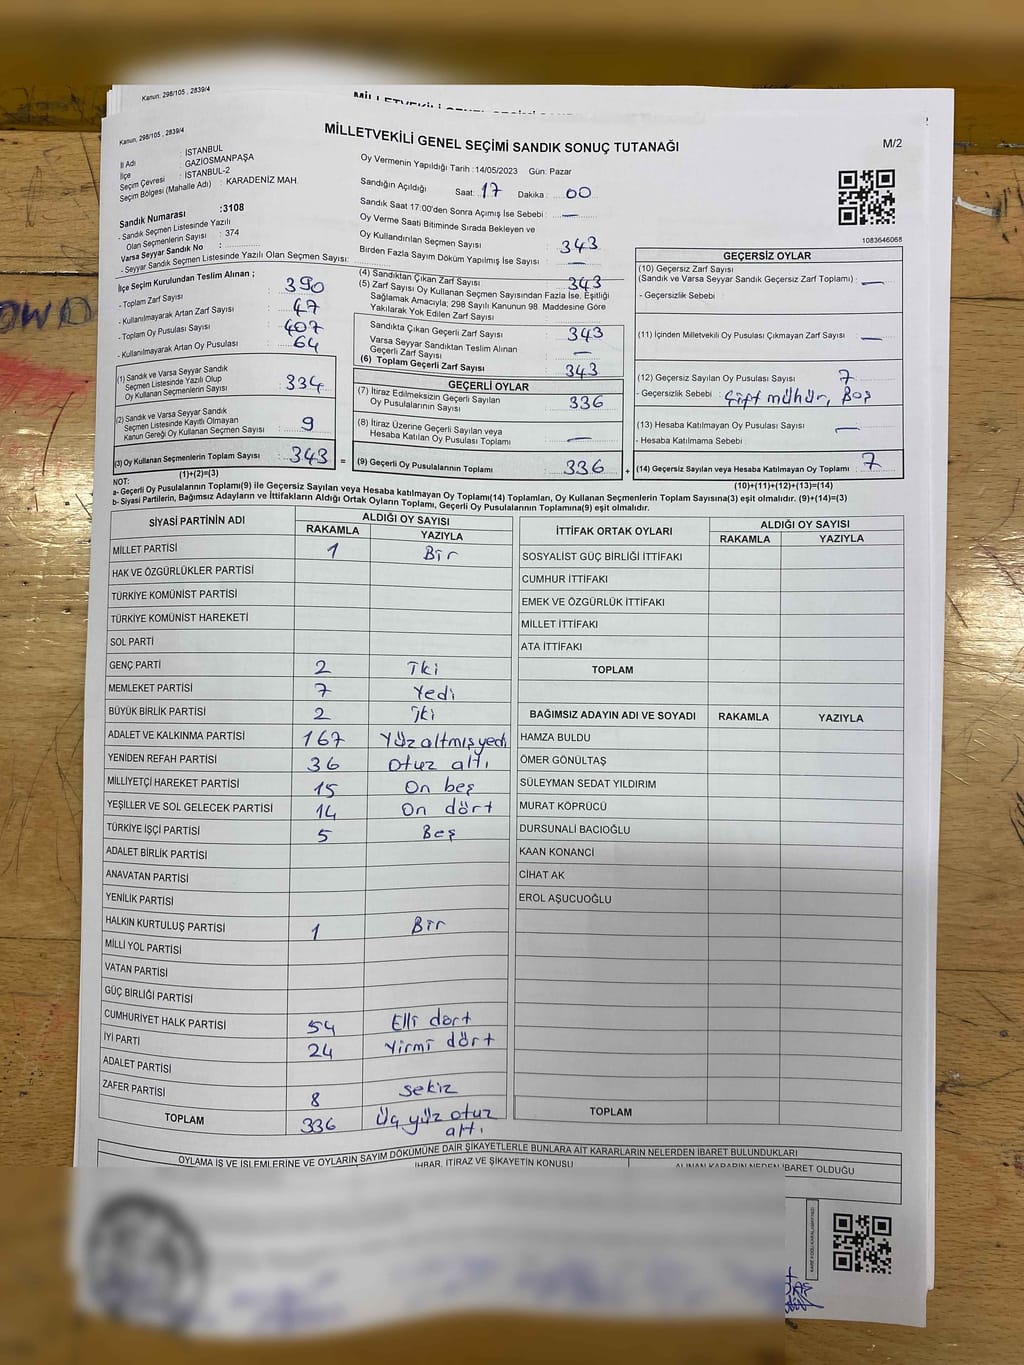 Kanun. 298/105 , 2839/4
Kanun. 298/105 , 2839/4
MİLLETVEKİLİ GENEL SEÇİMİ SANDIK SONUÇ TUTANAĞI
M/2
İl Adı : İSTANBUL
İlçe : GAZİOSMANPAŞA
Seçim Çevresi : İSTANBUL-2
Seçim Bölgesi (Mahalle Adı) : KARADENİZ MAH.
Sandık Numarası :3108
- Sandık Seçmen Listesinde Yazılı
Olan Seçmenlerin Sayısı : 374
Varsa Seyyar Sandık No :
- Seyyar Sandık Seçmen Listesinde Yazılı Olan Seçmen Sayısı:
Oy Vermenin Yapıldığı Tarih :14/05/2023 Gün: Pazar
Sandığın Açıldığı Saat: 17 Dakika : 00
Sandık Saat 17:00'den Sonra Açımış İse Sebebi : —
Oy Verme Saati Bitiminde Sırada Bekleyen ve
Oy Kullandırılan Seçmen Sayısı : 343
Birden Fazla Sayım Döküm Yapılmış İse Sayısı : —
1083646068
İlçe Seçim Kurulundan Teslim Alınan ;
- Toplam Zarf Sayısı : 390
- Kullanılmayarak Artan Zarf Sayısı : 47
- Toplam Oy Pusulası Sayısı : 407
- Kullanılmayarak Artan Oy Pusulası : 64
(1) Sandık ve Varsa Seyyar Sandık
Seçmen Listesinde Yazılı Olup
Oy Kullanan Seçmenlerin Sayısı : 334
(2) Sandık ve Varsa Seyyar Sandık
Seçmen Listesinde Kayıtlı Olmayan
Kanun Gereği Oy Kullanan Seçmen Sayısı : 9
(3) Oy Kullanan Seçmenlerin Toplam Sayısı : 343 =
(1)+(2)=(3)
(4) Sandıktan Çıkan Zarf Sayısı : 343
(5) Zarf Sayısı Oy Kullanan Seçmen Sayısından Fazla İse, Eşitliği
Sağlamak Amacıyla; 298 Sayılı Kanunun 98. Maddesine Göre
Yakılarak Yok Edilen Zarf Sayısı :
Sandıkta Çıkan Geçerli Zarf Sayısı : 343
Varsa Seyyar Sandıktan Teslim Alınan
Geçerli Zarf Sayısı : —
(6) Toplam Geçerli Zarf Sayısı : 343
GEÇERLİ OYLAR
(7) İtiraz Edilmeksizin Geçerli Sayılan
Oy Pusulalarının Sayısı : 336
(8) İtiraz Üzerine Geçerli Sayılan veya
Hesaba Katılan Oy Pusulası Toplamı : —
(9) Geçerli Oy Pusulalarının Toplamı : 336 +
GEÇERSİZ OYLAR
(10) Geçersiz Zarf Sayısı
(Sandık ve Varsa Seyyar Sandık Geçersiz Zarf Toplamı) : —
- Geçersizlik Sebebi :
(11) İçinden Milletvekili Oy Pusulası Çıkmayan Zarf Sayısı : —
(12) Geçersiz Sayılan Oy Pusulası Sayısı : 7
- Geçersizlik Sebebi : Çift mühür, Boş
(13) Hesaba Katılmayan Oy Pusulası Sayısı : —
- Hesaba Katılmama Sebebi :
(14) Geçersiz Sayılan veya Hesaba Katılmayan Oy Toplamı : 7
(10)+(11)+(12)+(13)=(14)
NOT:
a- Geçerli Oy Pusulalarının Toplamı(9) ile Geçersiz Sayılan veya Hesaba katılmayan Oy Toplamı(14) Toplamları, Oy Kullanan Seçmenlerin Toplam Sayısına(3) eşit olmalıdır. (9)+(14)=(3)
b- Siyasi Partilerin, Bağımsız Adayların ve İttifakların Aldığı Ortak Oyların Toplamı, Geçerli Oy Pusulalarının Toplamına(9) eşit olmalıdır.
SİYASİ PARTİNİN ADI ALDIĞI OY SAYISI
RAKAMLA YAZIYLA
MİLLET PARTİSİ 1 Bir
HAK VE ÖZGÜRLÜKLER PARTİSİ
TÜRKİYE KOMÜNİST PARTİSİ
TÜRKİYE KOMÜNİST HAREKETİ
SOL PARTİ
GENÇ PARTİ 2 İki
MEMLEKET PARTİSİ 7 Yedi
BÜYÜK BİRLİK PARTİSİ 2 İki
ADALET VE KALKINMA PARTİSİ 167 Yüz altmış yedi
YENİDEN REFAH PARTİSİ 36 Otuz altı
MİLLİYETÇİ HAREKET PARTİSİ 15 On beş
YEŞİLLER VE SOL GELECEK PARTİSİ 14 On dört
TÜRKİYE İŞÇİ PARTİSİ 5 Beş
ADALET BİRLİK PARTİSİ
ANAVATAN PARTİSİ
YENİLİK PARTİSİ
HALKIN KURTULUŞ PARTİSİ 1 Bir
MİLLİ YOL PARTİSİ
VATAN PARTİSİ
GÜÇ BİRLİĞİ PARTİSİ
CUMHURİYET HALK PARTİSİ 54 Elli dört
İYİ PARTİ 24 Yirmi dört
ADALET PARTİSİ
ZAFER PARTİSİ 8 Sekiz
TOPLAM 336 Üç yüz otuz
altı
İTTİFAK ORTAK OYLARI ALDIĞI OY SAYISI
RAKAMLA YAZIYLA
SOSYALİST GÜÇ BİRLİĞİ İTTİFAKI
CUMHUR İTTİFAKI
EMEK VE ÖZGÜRLÜK İTTİFAKI
MİLLET İTTİFAKI
ATA İTTİFAKI
TOPLAM
BAĞIMSIZ ADAYIN ADI VE SOYADI RAKAMLA YAZIYLA
HAMZA BULDU
ÖMER GÖNÜLTAŞ
SÜLEYMAN SEDAT YILDIRIM
MURAT KÖPRÜCÜ
DURSUNALİ BACIOĞLU
KAAN KONANCİ
CİHAT AK
EROL AŞUCUOĞLU
TOPLAM
OYLAMA İŞ VE İŞLEMLERİNE VE OYLARIN SAYIM DÖKÜMÜNE DAİR ŞİKAYETLERLE BUNLARA AİT KARARLARIN NELERDEN İBARET BULUNDUKLARI
İHBAR, İTİRAZ VE ŞİKAYETİN KONUSU ALINAN KARARIN NEDEN İBARET OLDUĞU